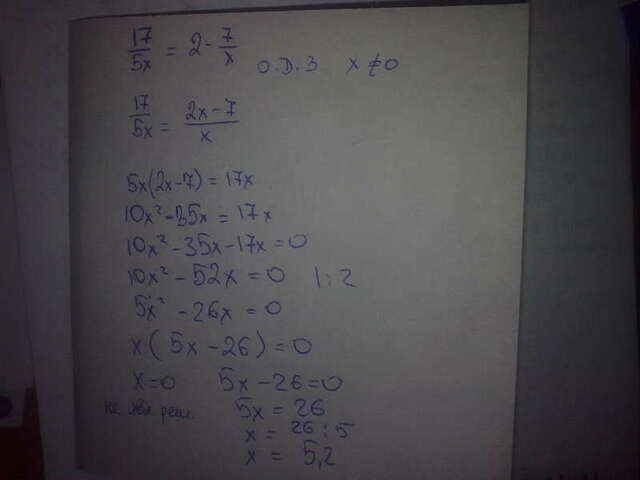 17/5x = 2 - 7/x О.D.З x ≠ 0
17/5x = 2x-7/x
5x(2x-7) = 17x
10x² - 35x = 17x
10x² - 35x - 17x = 0
10x² - 52x = 0 | : 2
5x² - 26x = 0
x ( 5x - 26 ) = 0
x = 0 5x - 26 = 0
не явл. реш. 5x = 26
x = 26 : 5
x = 5,2